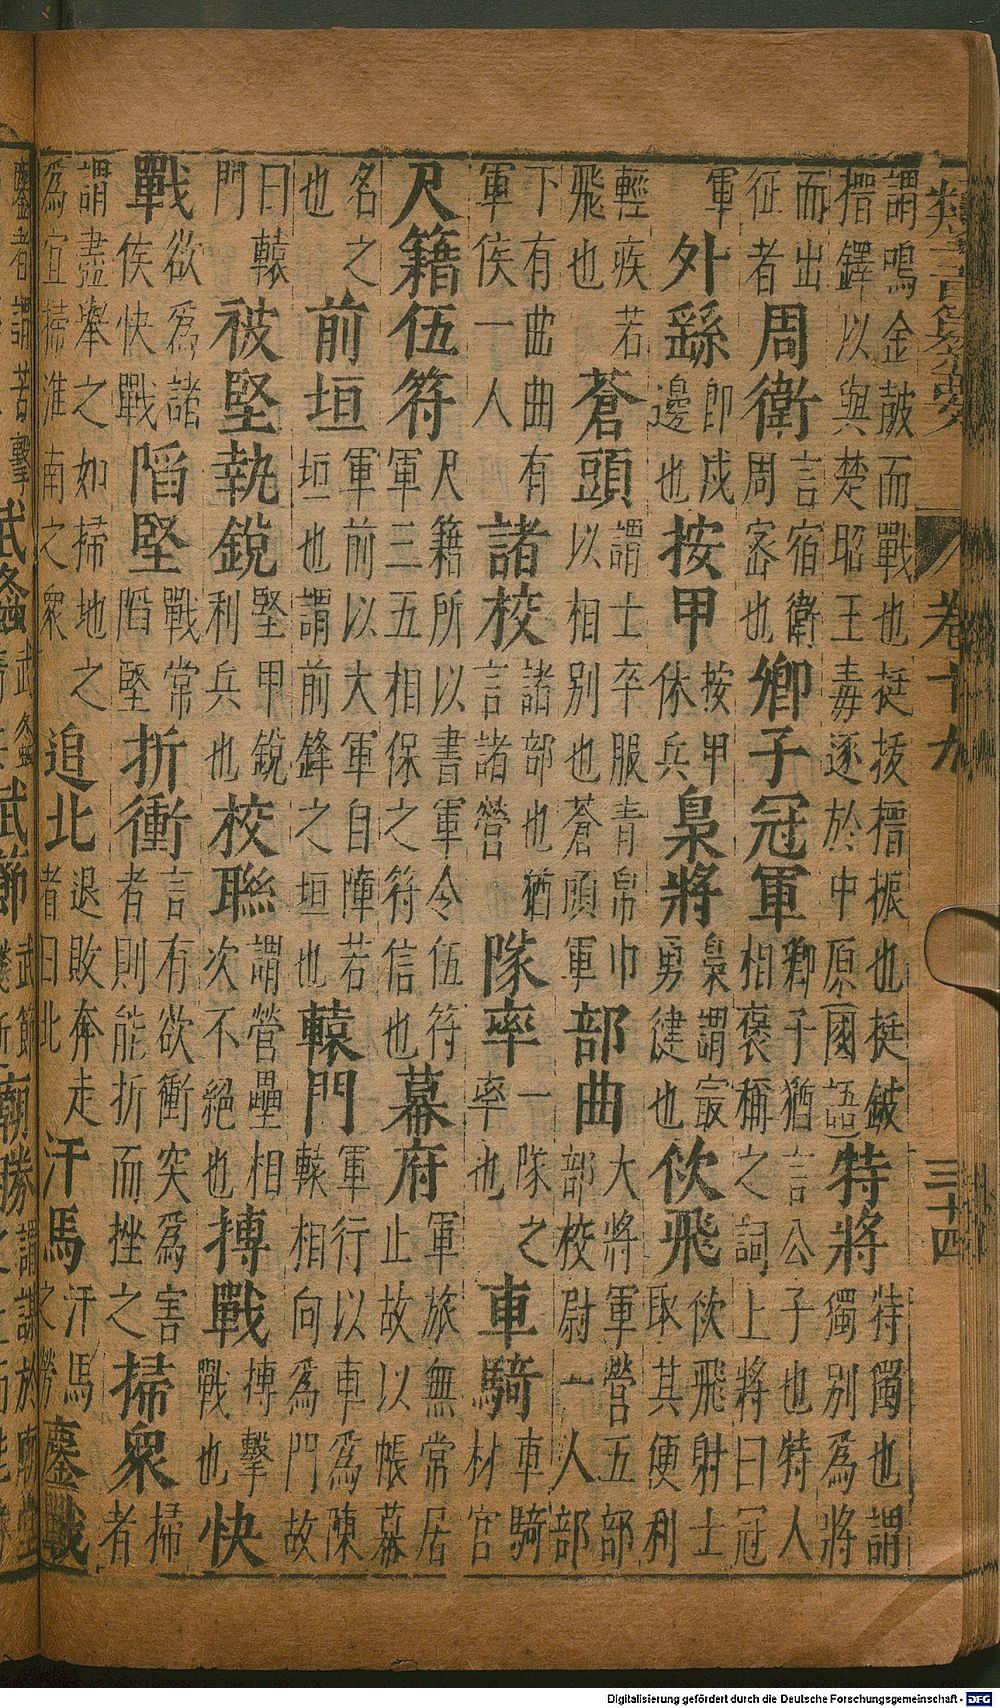 卷十九 三十四
謂鳴金皷而戰也挺拔搢振也挺鈹搢鐸以與楚昭王毒逐於中原國語特將特獨也謂獨別為將
而出征者周衛言宿衛周宻也卿子冠軍卿子猶言公子也特人相褒稱之詞上將曰冠
軍外繇即戍邊也按甲按甲休兵梟將梟謂㝡勇健也佽飛佽飛射士取其便利
輕疾若飛也蒼頭謂士卒服青帛巾以相別也蒼頭軍部曲大將軍營五部部校尉一人部
下有曲曲有軍侯一人諸校諸部也猶言諸營隊率一隊之率也車騎車騎材官
尺籍伍符尺籍所以書軍令伍符軍三五相保之符信也幕府軍旅無常居止故以帳幕
名之也前垣軍前以大軍自障若垣也謂前鋒之垣也轅門軍行以車為陳轅相向為門故
曰轅門被堅執銳堅甲銳利兵也校聯謂營壘相次不絕也搏戰搏擊戰也快
戰欲為諸侯快戰陷堅戰常陷堅折衝言有欲衝突為害者則能折而挫之掃衆掃者
謂盡舉之如掃地之為宜掃淮南之衆追北退敗奔走者曰北汗馬汗馬之勞鏖戰
Digitalisierung gefördert durch die Deutsche Forschungsgemeinschaft - DFG